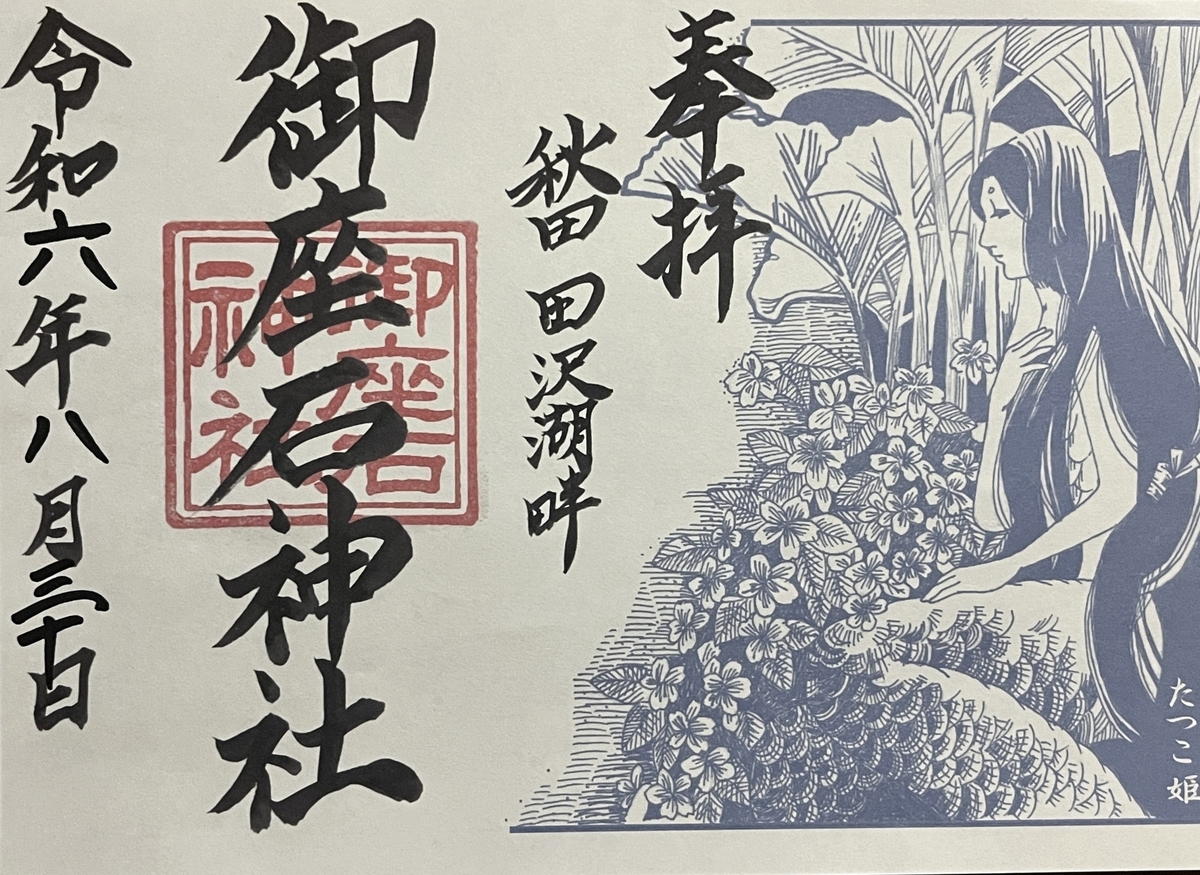 奉拝
秋田 田沢湖畔
御座石神社
御座石
神社
令和六年八月三十日
たつこ姫